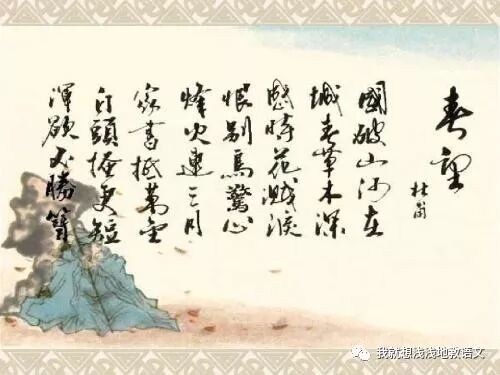 春望
杜甫
國破山河在
城春草木深
感時花濺淚
恨別鳥驚心
烽火連三月
家書抵萬金
白頭搔更短
渾欲不勝簪
我就想浅浅地教语文